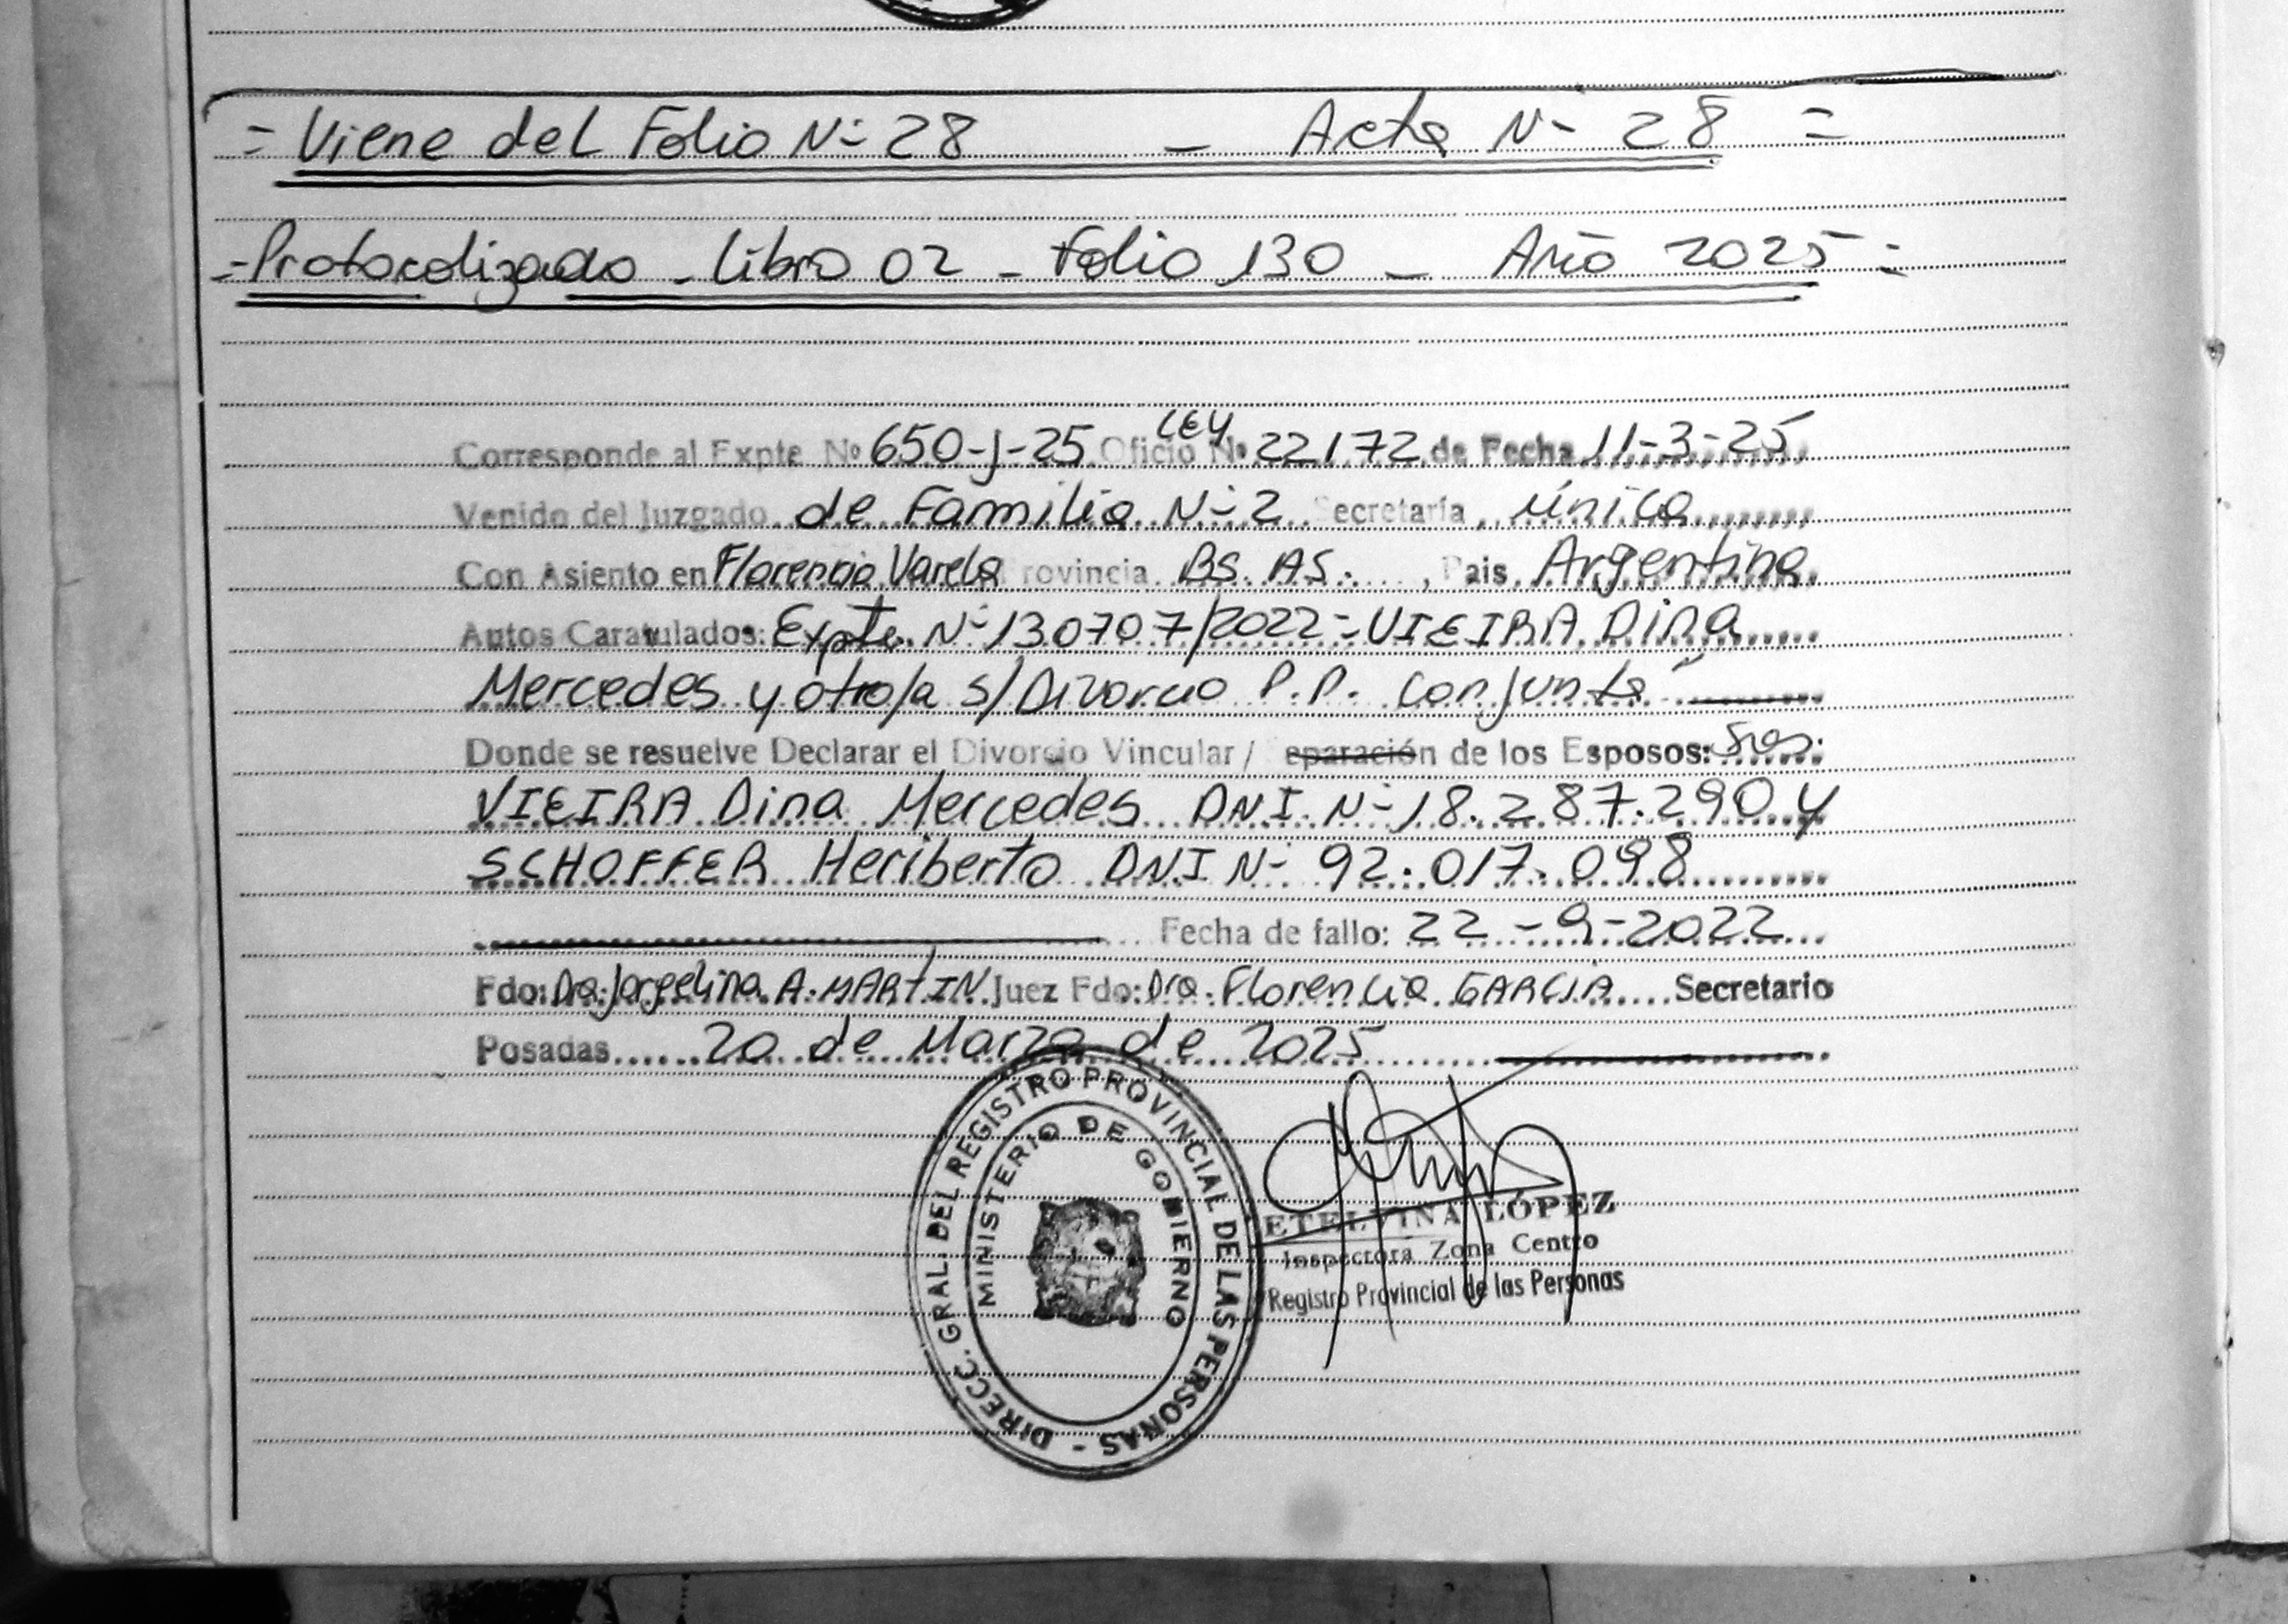 = Viene del Folio N- 28 - Acta N- 28 =
=Protocolizado - Libro 02 - Folio 130 - Año 2025=
LEY
Corresponde al Expte Nº 650-J-25 Oficio Nº 22172 de Fecha 11-3-25
Venido del Juzgado de Familia N-2 Secretaría única
Con Asiento en Florencio Varela Provincia Bs. As. , Pais Argentina
Autos Caratulados: Expte. N-130707/2022-VIEIRA Dina
Mercedes y otro/a s/Divorcio P.P. Conjunta"
Donde se resuelve Declarar el Divorcio Vincular / eparación de los Esposos: Sres.
VIEIRA Dina Mercedes DNI. N-18.287.290 y
SCHOFFER Heriberto DNI N- 92.017.098
Fecha de fallo: 22-9-2022
Fdo: Dra. Jorgelina A. MARTIN Juez Fdo: Dra. Florencia GARCIA Secretario
Posadas 20 de Marzo de 2025
DIRECC. GRAL. DEL REGISTRO PROVINCIAL DE LAS PERSONAS -
MINISTERIO DE GOBIERNO
ETELVINA LÓPEZ
Inspectora Zona Centro
Registro Provincial de las Personas